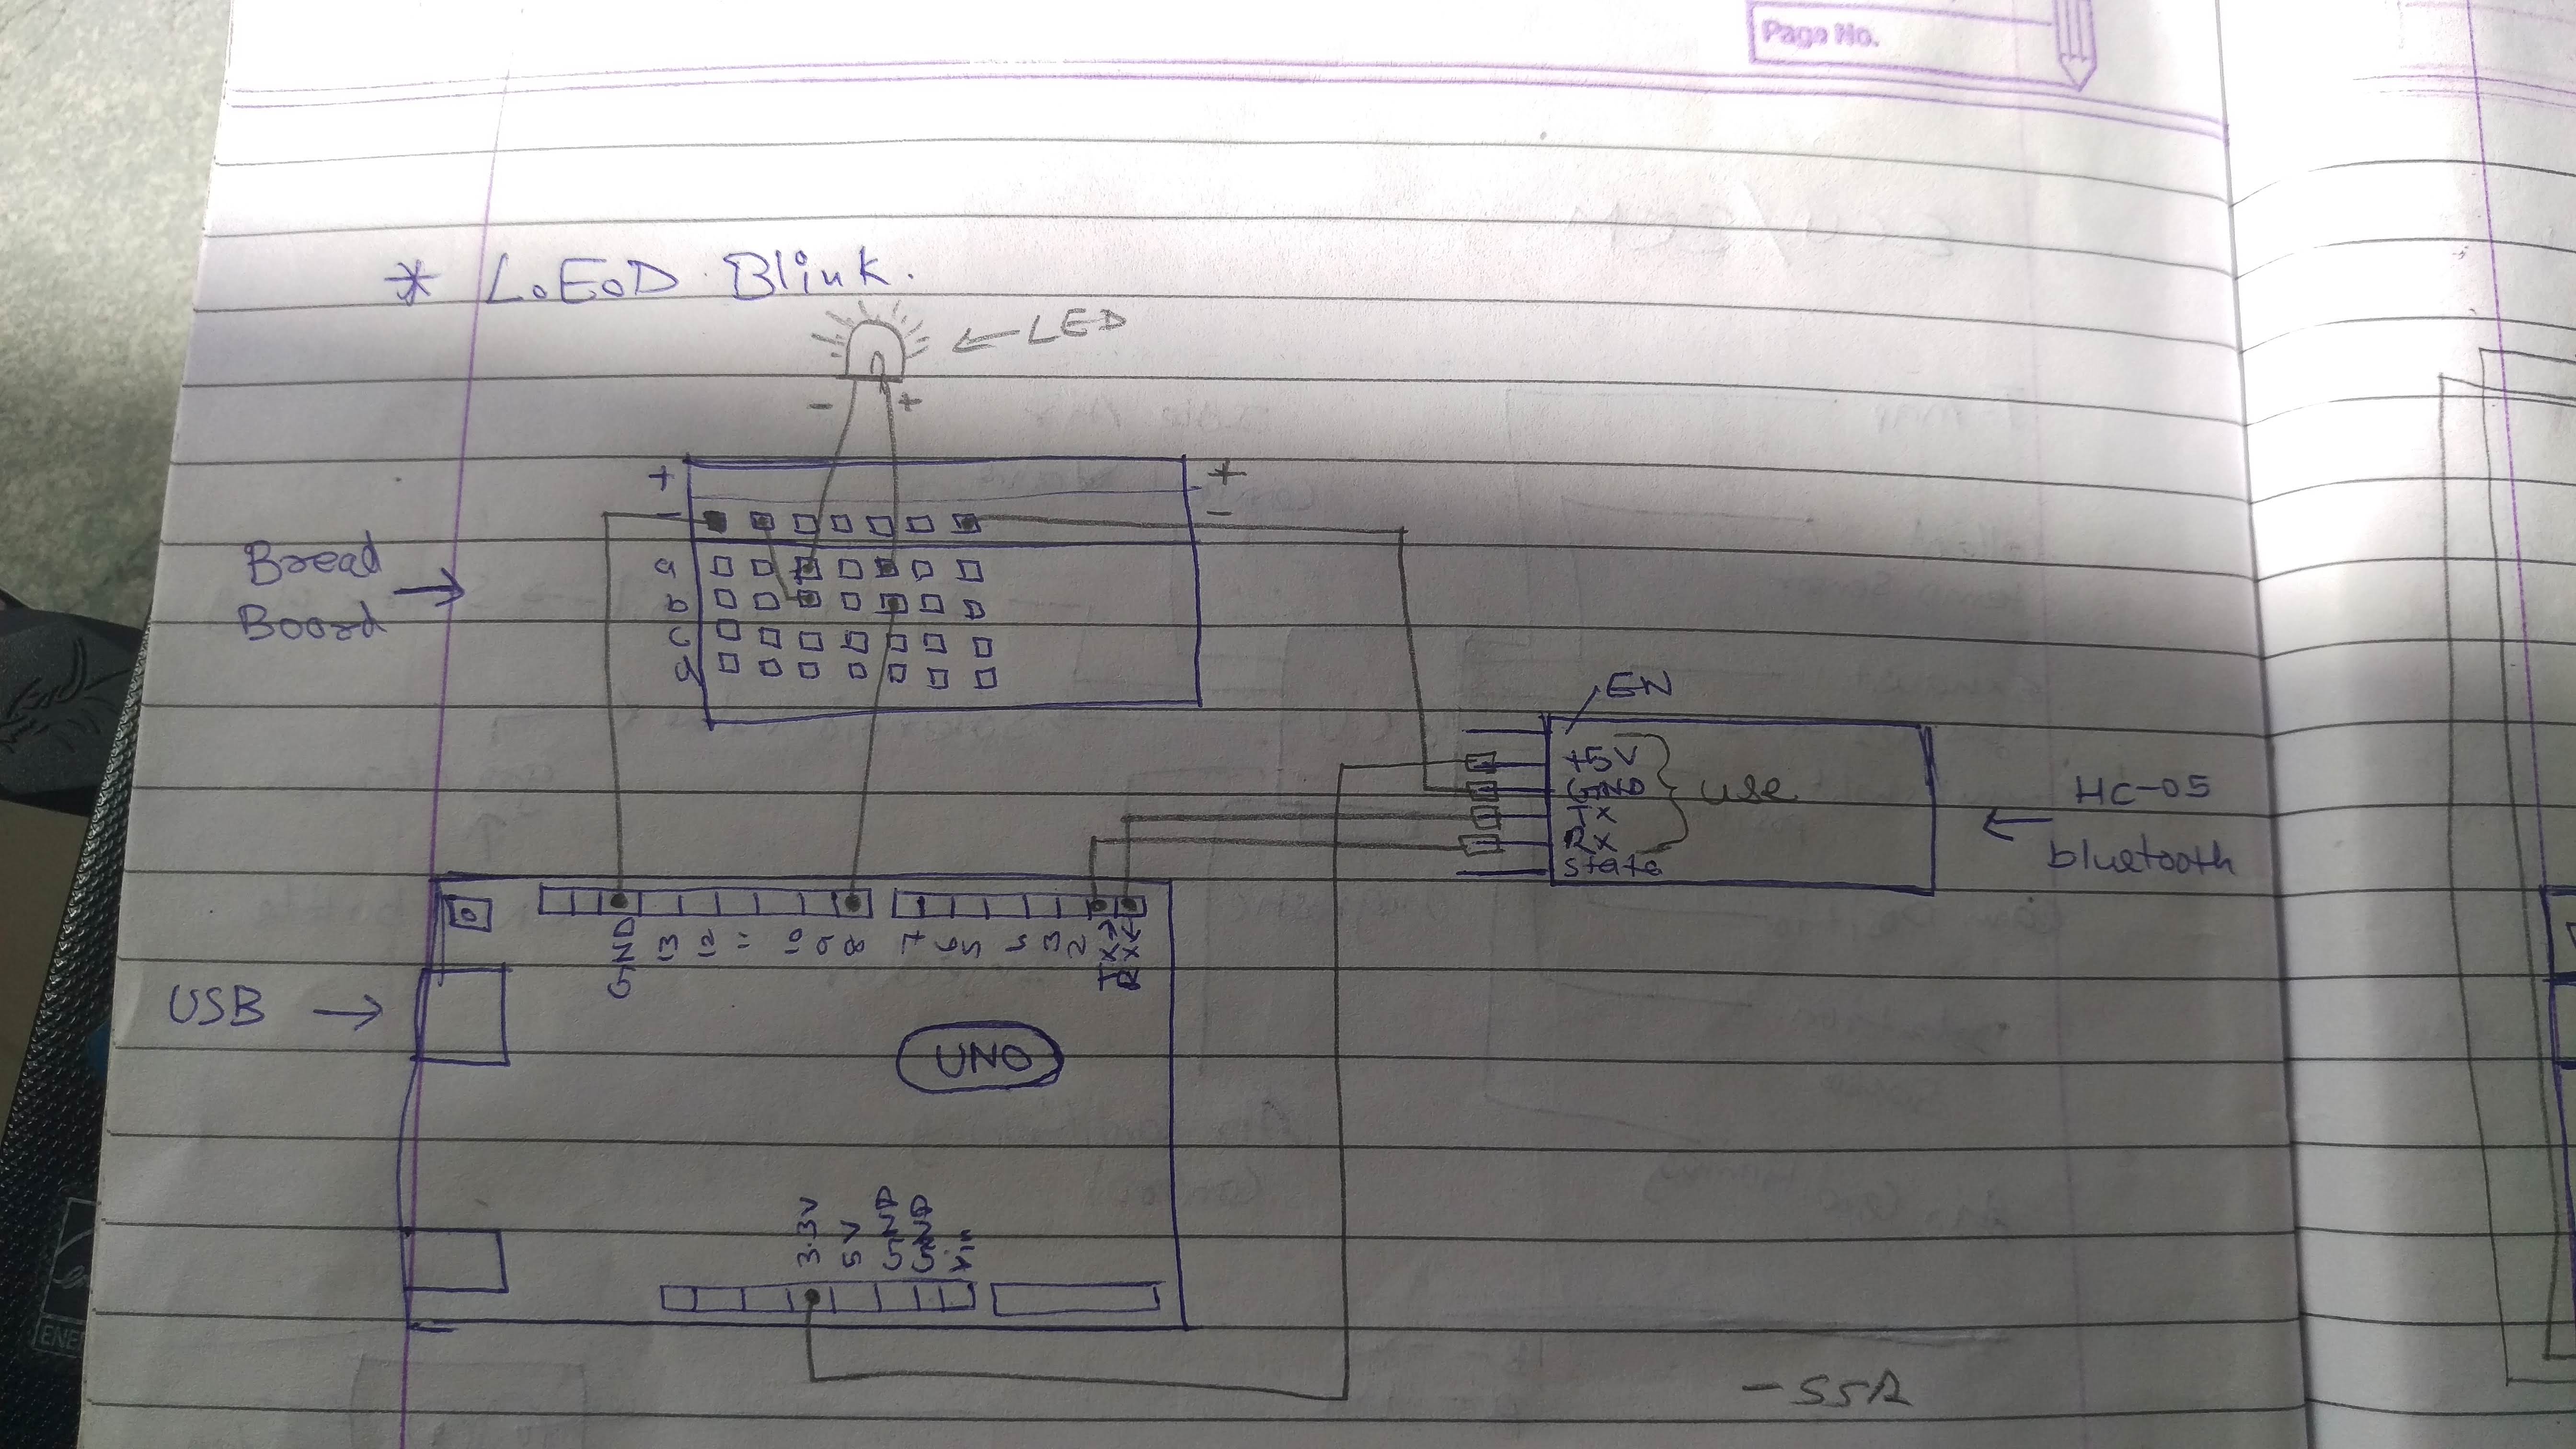 Page No.
* L.E.D Blink.
← LED
- +
+ +
- -
Bread
Board →
a
b
c
d
EN
+5V
GND
Tx
Rx
State
use
HC-05
← bluetooth
GND 13 12 11 10 9 8 7 6 5 4 3 2 Tx→ Rx←
USB →
UNO
3.3V 5V GND GND Vin
-SSR
ENE